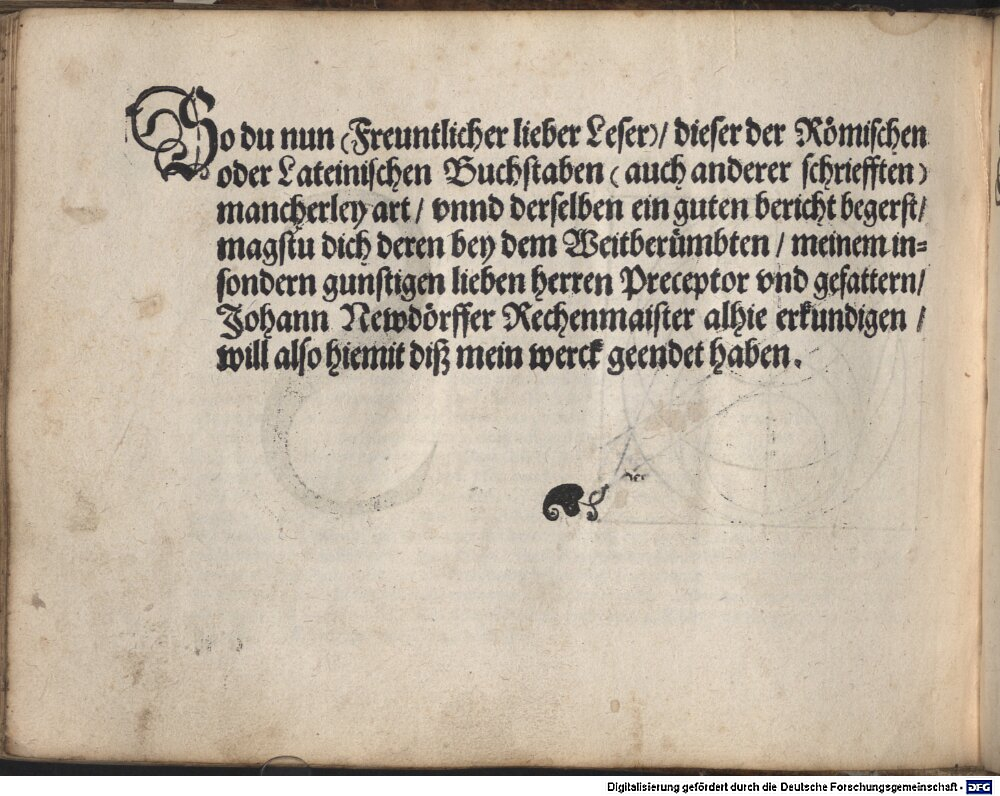 So du nun (Freuntlicher lieber Leser)/ dieser der Römischen
oder Lateinischen Buchstaben (auch anderer schriefften)
mancherley art / vnnd derselben ein guten bericht begerst/
magstu dich deren bey dem Weitberümbten / meinem in=
sondern gunstigen lieben herren Preceptor vnd gefattern/
Johann Newdörffer Rechenmaister alhie erkundigen /
will also hiemit diß mein werck geendet haben.
Digitalisierung gefördert durch die Deutsche Forschungsgemeinschaft - DFG